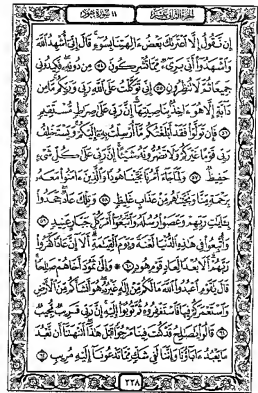 الجزء الثاني عشر ١١ سورة هود
إِن نَّقُولُ إِلَّا ٱعْتَرَىٰكَ بَعْضُ ءَالِهَتِنَا بِسُوٓءٍ قَالَ إِنِّىٓ أُشْهِدُ ٱللَّهَ
وَٱشْهَدُوٓا۟ أَنِّى بَرِىٓءٌ مِّمَّا تُشْرِكُونَ ٥٤ مِن دُونِهِۦ فَكِيدُونِى
جَمِيعًا ثُمَّ لَا تُنظِرُونِ ٥٥ إِنِّى تَوَكَّلْتُ عَلَى ٱللَّهِ رَبِّى وَرَبِّكُم مَّا مِن
دَآبَّةٍ إِلَّا هُوَ ءَاخِذٌۢ بِنَاصِيَتِهَآ إِنَّ رَبِّى عَلَىٰ صِرَٰطٍ مُّسْتَقِيمٍ
٥٦ فَإِن تَوَلَّوْا۟ فَقَدْ أَبْلَغْتُكُم مَّآ أُرْسِلْتُ بِهِۦٓ إِلَيْكُمْ وَيَسْتَخْلِفُ
رَبِّى قَوْمًا غَيْرَكُمْ وَلَا تَضُرُّونَهُۥ شَيْـًٔا إِنَّ رَبِّى عَلَىٰ كُلِّ شَىْءٍ
حَفِيظٌ ٥٧ وَلَمَّا جَآءَ أَمْرُنَا نَجَّيْنَا هُودًا وَٱلَّذِينَ ءَامَنُوا۟ مَعَهُۥ
بِرَحْمَةٍ مِّنَّا وَنَجَّيْنَٰهُم مِّنْ عَذَابٍ غَلِيظٍ ٥٨ وَتِلْكَ عَادٌ جَحَدُوا۟
بِـَٔايَٰتِ رَبِّهِمْ وَعَصَوْا۟ رُسُلَهُۥ وَٱتَّبَعُوٓا۟ أَمْرَ كُلِّ جَبَّارٍ عَنِيدٍ ٥٩
وَأُتْبِعُوا۟ فِى هَٰذِهِ ٱلدُّنْيَا لَعْنَةً وَيَوْمَ ٱلْقِيَٰمَةِ أَلَآ إِنَّ عَادًا كَفَرُوا۟
رَبَّهُمْ أَلَا بُعْدًا لِّعَادٍ قَوْمِ هُودٍ ٦٠ ۞ وَإِلَىٰ ثَمُودَ أَخَاهُمْ صَٰلِحًا
قَالَ يَٰقَوْمِ ٱعْبُدُوا۟ ٱللَّهَ مَا لَكُم مِّنْ إِلَٰهٍ غَيْرُهُۥ هُوَ أَنشَأَكُم مِّنَ ٱلْأَرْضِ
وَٱسْتَعْمَرَكُمْ فِيهَا فَٱسْتَغْفِرُوهُ ثُمَّ تُوبُوٓا۟ إِلَيْهِ إِنَّ رَبِّى قَرِيبٌ مُّجِيبٌ
٦١ قَالُوا۟ يَٰصَٰلِحُ قَدْ كُنتَ فِينَا مَرْجُوًّا قَبْلَ هَٰذَآ أَتَنْهَىٰنَآ أَن نَّعْبُدَ
مَا يَعْبُدُ ءَابَآؤُنَا وَإِنَّنَا لَفِى شَكٍّ مِّمَّا تَدْعُونَآ إِلَيْهِ مُرِيبٍ ٦٢
٢٢٨